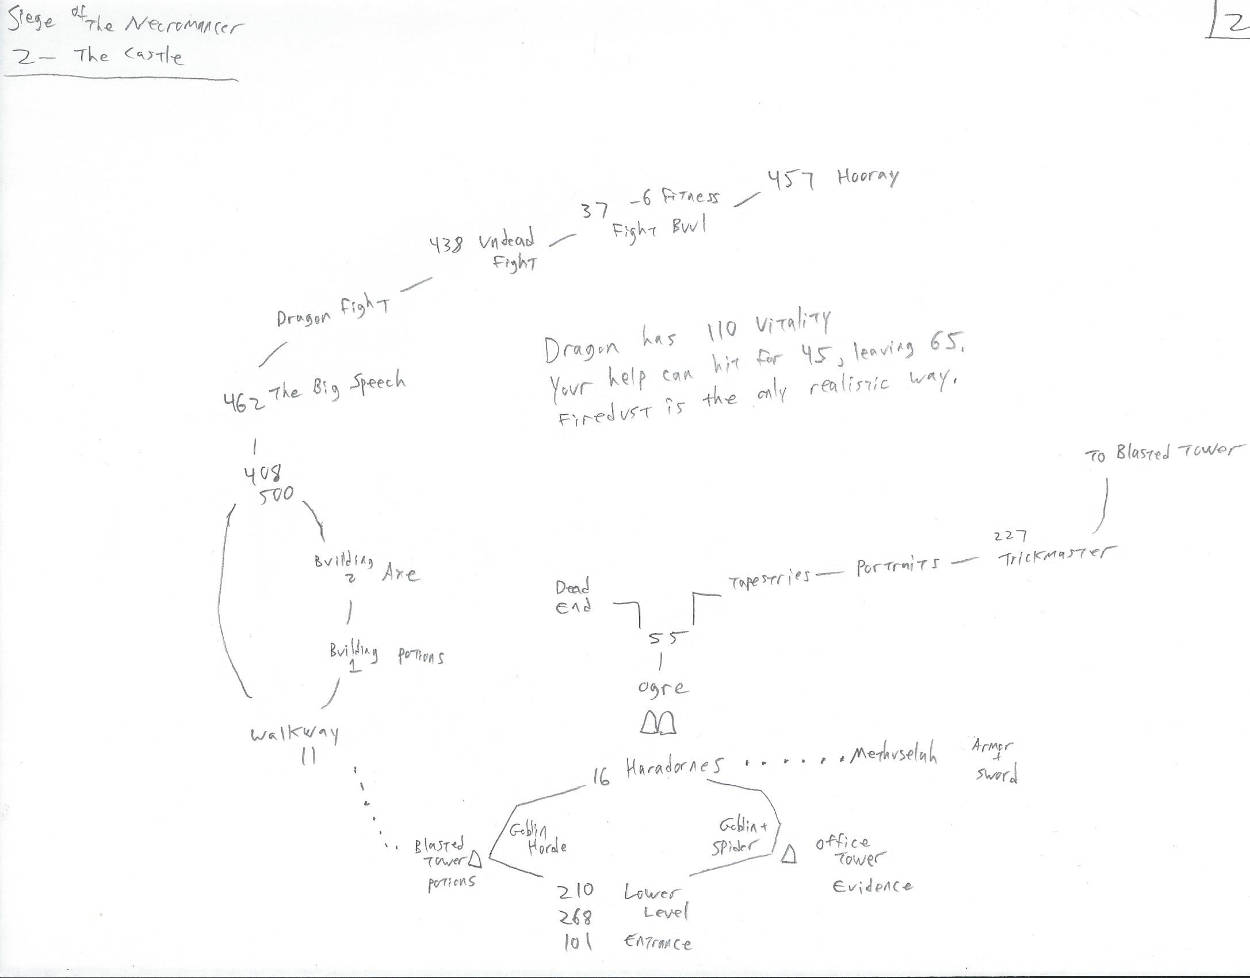 Siege of The Necromancer
2
2 - The Castle
457 Hooray
37 -6 Fitness
Fight Bull
438 Undead
Fight
Dragon Fight
Dragon has 110 Vitality
Your help can hit for 45, leaving 65.
Firedust is the only realistic way.
462 The Big Speech
408
500
To Blasted Tower
227
Trickmaster
Portraits
Tapestries
Building
2 Axe
Dead
End
55
Building Potions
1
Ogre
Walkway
11
16 Haradornes
Methuselah
Armor
+
Sword
Goblin
Horde
Goblin +
Spider
Blasted
Tower
Potions
Office
Tower
Evidence
210 Lower
268 Level
101 Entrance